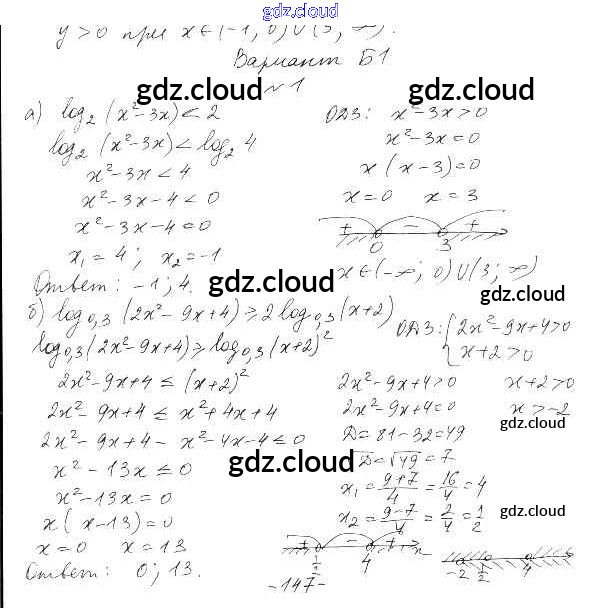 gdz.cloud
y > 0 при x ∈ (-1, 0) ∪ (3, ∞).
Вариант Б1
gdz.cloud gdz.cloud
№ 1
а) log₂ (x² - 3x) < 2
log₂ (x² - 3x) < log₂ 4
x² - 3x < 4
x² - 3x - 4 < 0
x² - 3x - 4 = 0
x₁ = 4; x₂ = -1
Ответ: -1; 4.
ОДЗ: x² - 3x > 0
x² - 3x = 0
x (x - 3) = 0
x = 0 x = 3
+ - +
0 3
x ∈ (-∞; 0) ∪ (3; ∞)
gdz.cloud gdz.cloud
gdz.cloud
gdz.cloud gdz.cloud
б) log₀,₃ (2x² - 9x + 4) ≥ 2 log₀,₃ (x + 2)
log₀,₃ (2x² - 9x + 4) ≥ log₀,₃ (x + 2)²
2x² - 9x + 4 ≤ (x + 2)²
2x² - 9x + 4 ≤ x² + 4x + 4
2x² - 9x + 4 - x² - 4x - 4 ≤ 0
x² - 13x ≤ 0
x² - 13x = 0
x (x - 13) = 0
x = 0 x = 13
Ответ: 0; 13.
ОДЗ: { 2x² - 9x + 4 > 0
x + 2 > 0
2x² - 9x + 4 > 0 x + 2 > 0
2x² - 9x + 4 = 0 x > -2
D = 81 - 32 = 49
√D = √49 = 7
x₁ = (9 + 7)/4 = 16/4 = 4
x₂ = (9 - 7)/4 = 2/4 = 1/2
gdz.cloud
gdz.cloud
gdz.cloud
+ - + x
1/2 4
-2 1/2 4
-147-